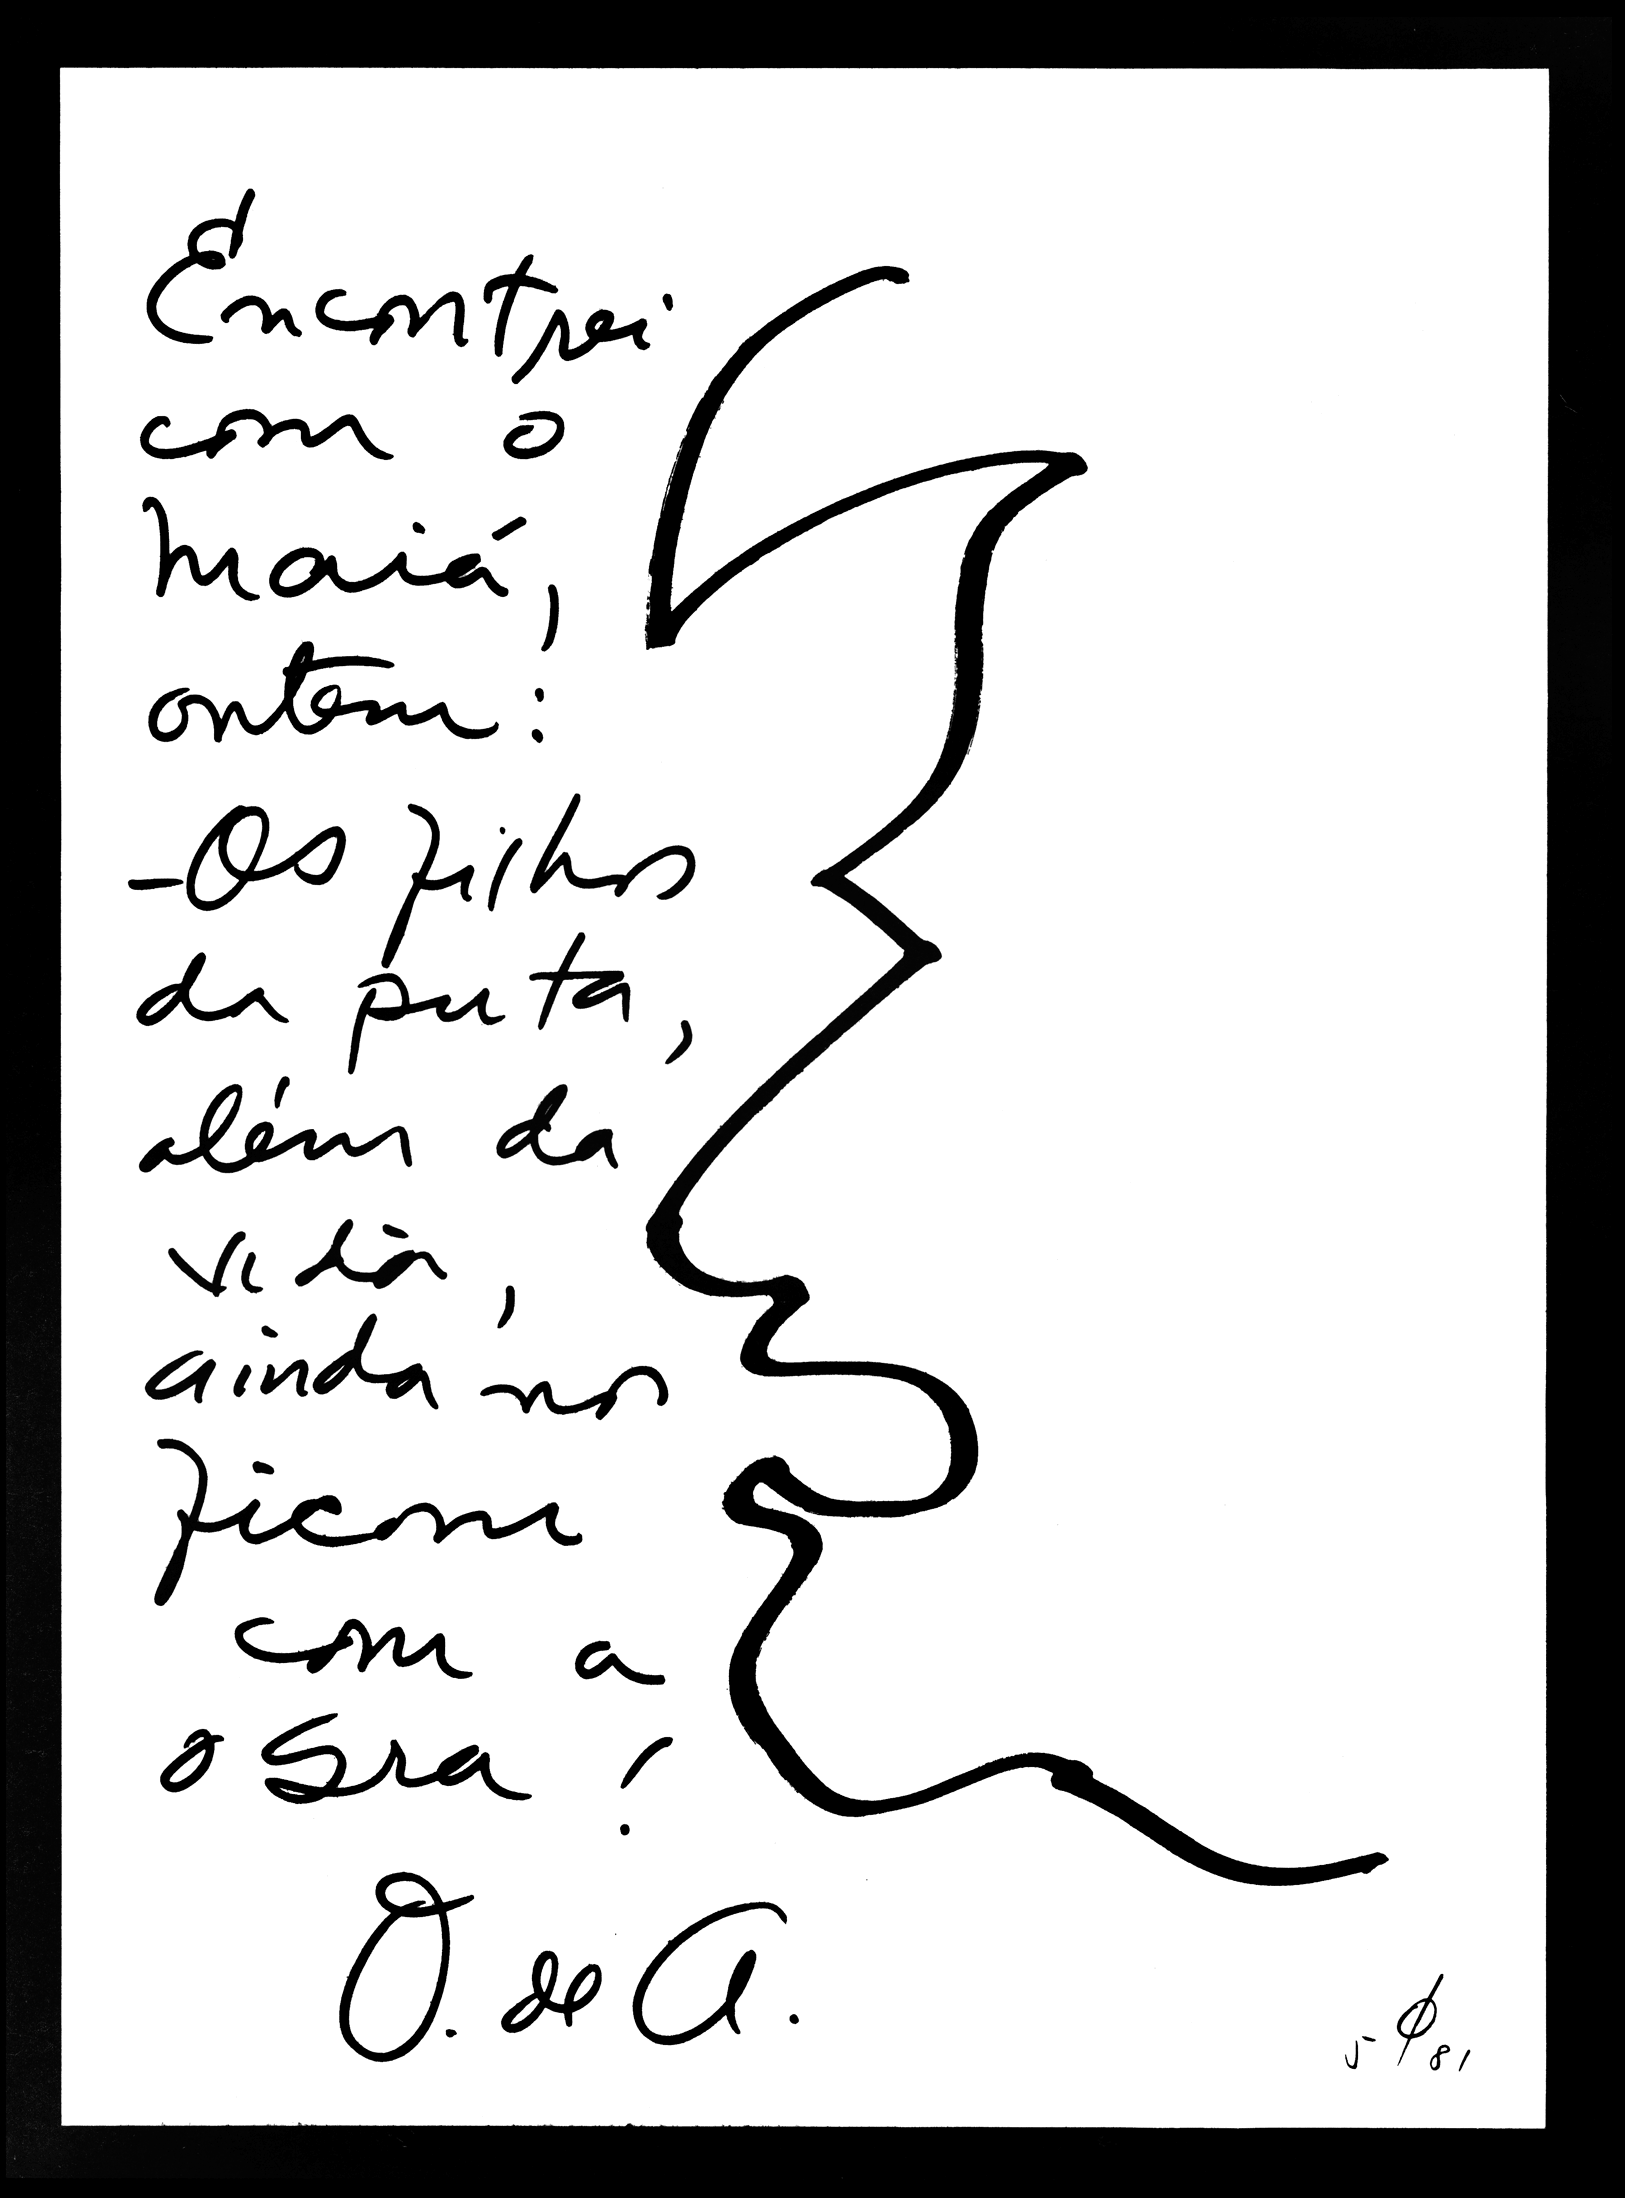 Encontrei
com o
Maiá,
ontem:
-Os filhos
da puta,
além da
vida,
ainda nos
ficam
com a
osra!
O. de A.
5 81